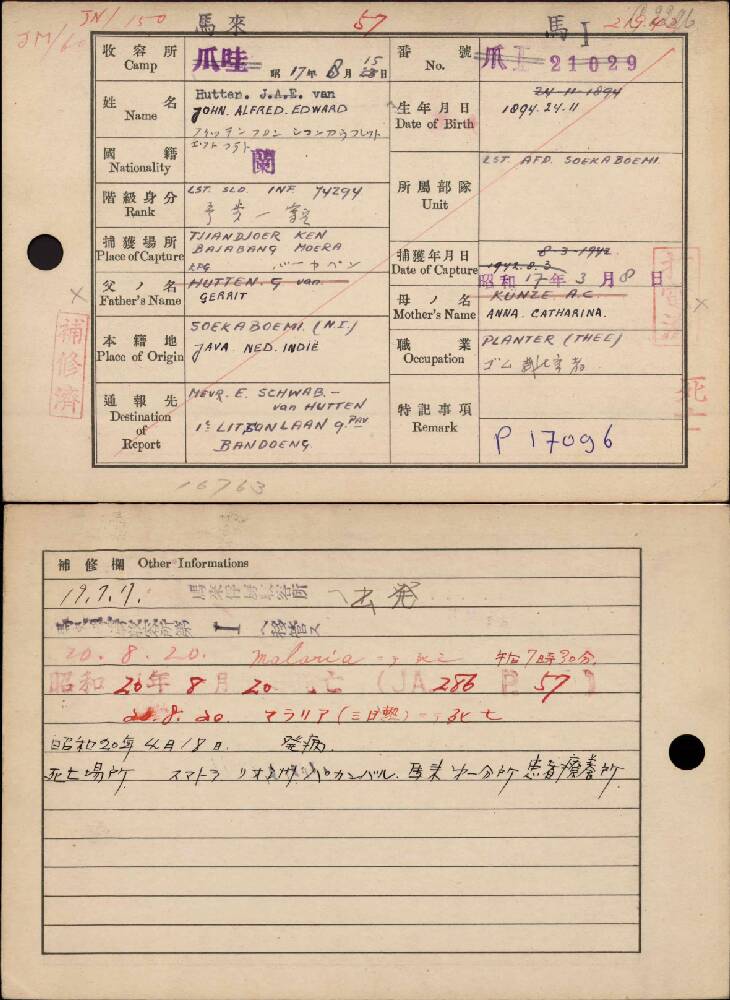 JN/150
馬來
57
馬I
JM/60
收容所
Camp
爪哇
昭17年8月15日
番號
No.
爪I 21029
姓名
Name
Hutten. J.A.E. van
JOHN. ALFRED. EDWARD
生年月日
Date of Birth
24-11-1894
1894.24.11
國籍
Nationality
蘭
階級身分
Rank
LST. SLD. INF 74294
所屬部隊
Unit
LST. AFD. SOEKABOEMI.
捕獲場所
Place of Capture
TJIANDJOER KEN
BAJABANG MOERA
捕獲年月日
Date of Capture
8-3-1942
1942.8.3
昭和17年3月8日
父ノ名
Father's Name
HUTTEN. G van
GERRIT
母ノ名
Mother's Name
KUNZE A.C.
ANNA. CATHARINA.
本籍地
Place of Origin
SOEKABOEMI. (N.I.)
JAVA. NED. INDIË
職業
Occupation
PLANTER (THEE)
通報先
Destination of Report
MEVR. E. SCHWAB.-
van HUTTEN
1e LITSONLAAN 9. PAV
BANDOENG.
特記事項
Remark
P 17096
補修濟
死亡
16763
補修欄 Other Informations
19.7.7. 馬來俘虜收容所 ヘ出発
I ヘ移管ス
20.8.20. malaria 午后7時30分.
昭和20年8月20 亡 (JA 286 P 57)
20.8.20. マラリア(三日熱)
昭和20年4月18日. 発病.
死亡場所 スマトラ リオ州 パカンバル. 馬来 第一分所 患者療養所